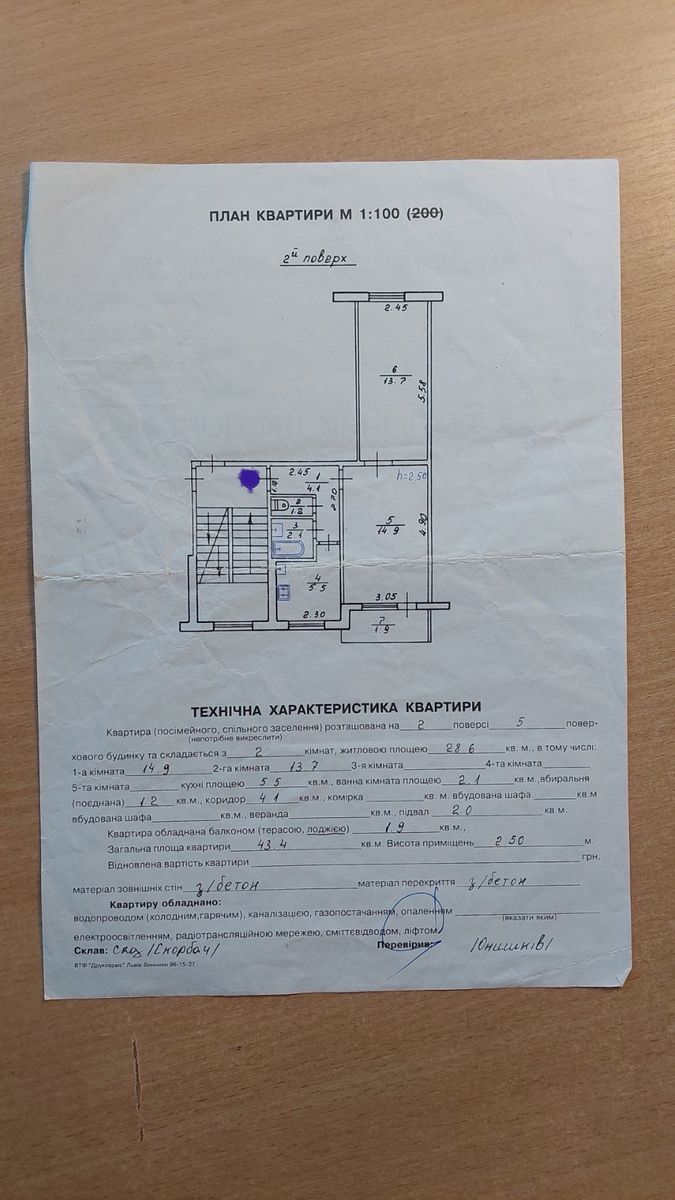 ПЛАН КВАРТИРИ М 1:100 (200)
2й поверх
2.45
6
13.7
5.58
2.45
1
4.1
1.70
2.20
h=2.50
2
1.2
3
2.1
5
14.9
4.90
4
5.5
2.30
3.05
7
1.9
ТЕХНІЧНА ХАРАКТЕРИСТИКА КВАРТИРИ
Квартира (посімейного, спільного заселення) розташована на 2 поверсі 5 повер-
(непотрібне викреслити)
хового будинку та складається з 2 кімнат, житловою площею 28 6 кв. м., в тому числі:
1-а кімната 14.9 2-га кімната 13.7 3-я кімната 4-та кімната
5-та кімната кухні площею 5 5 кв.м., ванна кімната площею 2.1 кв.м.,вбиральня
(поєднана) 1 2 кв.м., коридор 4.1 кв.м., комірка кв. м. вбудована шафа кв.м
вбудована шафа кв.м., веранда кв.м., підвал 2 0 кв.м.
Квартира обладнана балконом (терасою, лоджією) 1.9 кв.м.,
Загальна площа квартири 43.4 кв.м. Висота приміщень 2 50 м.
Відновлена вартість квартири грн.
матеріал зовнішніх стін з/бетон матеріал перекриття з/бетон
Квартиру обладнано:
водопроводом (холодним,гарячим), каналізацією, газопостачанням, опаленням
(вказати яким)
електроосвітленням, радіотрансляційною мережею, сміттєвідводом, ліфтом.
Склав: /Скорбач/ Перевірив: /Юнишків/
ВТФ "Друксервіс" Львів-Винники 96-15-27